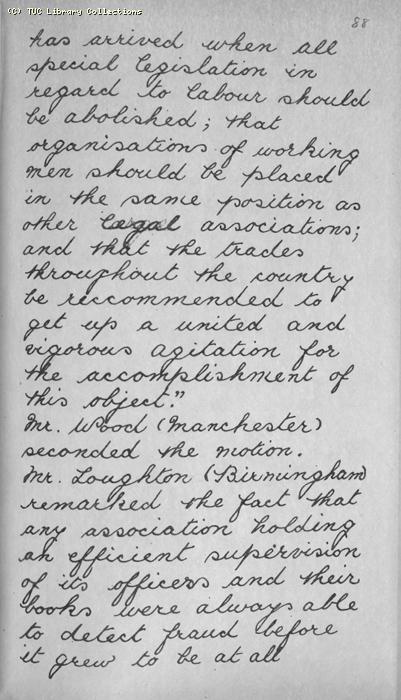 (C) TUC Library Collections
88
has arrived when all
special legislation in
regard to labour should
be abolished; that
organisations of working
men should be placed
in the same position as
other legal associations;
and that the trades
throughout the country
be reccommended to
get up a united and
vigorous agitation for
the accomplishment of
this object."
Mr. Wood (Manchester)
seconded the motion.
Mr. Loughton (Birmingham)
remarked the fact that
any association holding
an efficient supervision
of its officers and their
books were always able
to detect fraud before
it grew to be at all